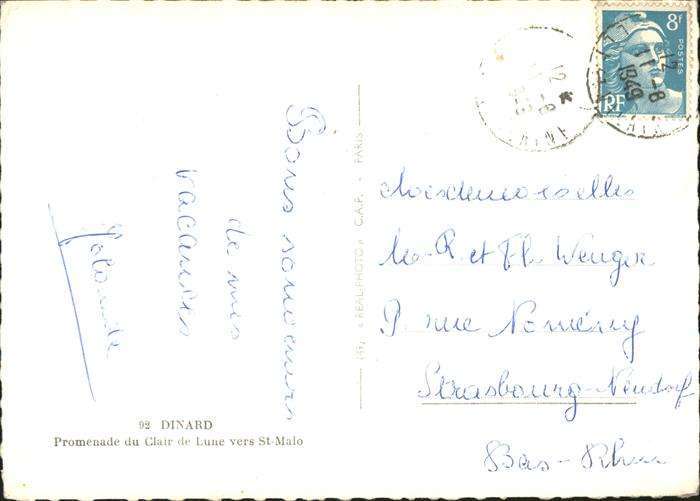 Bons souvenirs
de mes
vacances
Yolande
92 DINARD
Promenade du Clair de Lune vers St-Malo
« REAL-PHOTO » C.A.P. - PARIS
8F
POSTES
RF
12
11-8
1949
Mesdemoiselles
et Th. Wenger
9 rue Nomény
Strasbourg-Neudorf
Bas-Rhin